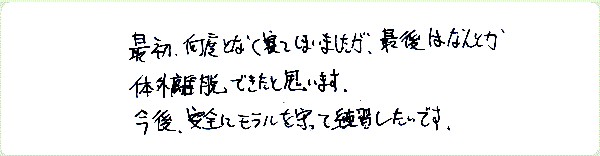 最初、何度となく寝てしまいましたが、最後はなんとか
体外離脱できたと思います。
今後、安全にモラルを守って練習したいです。